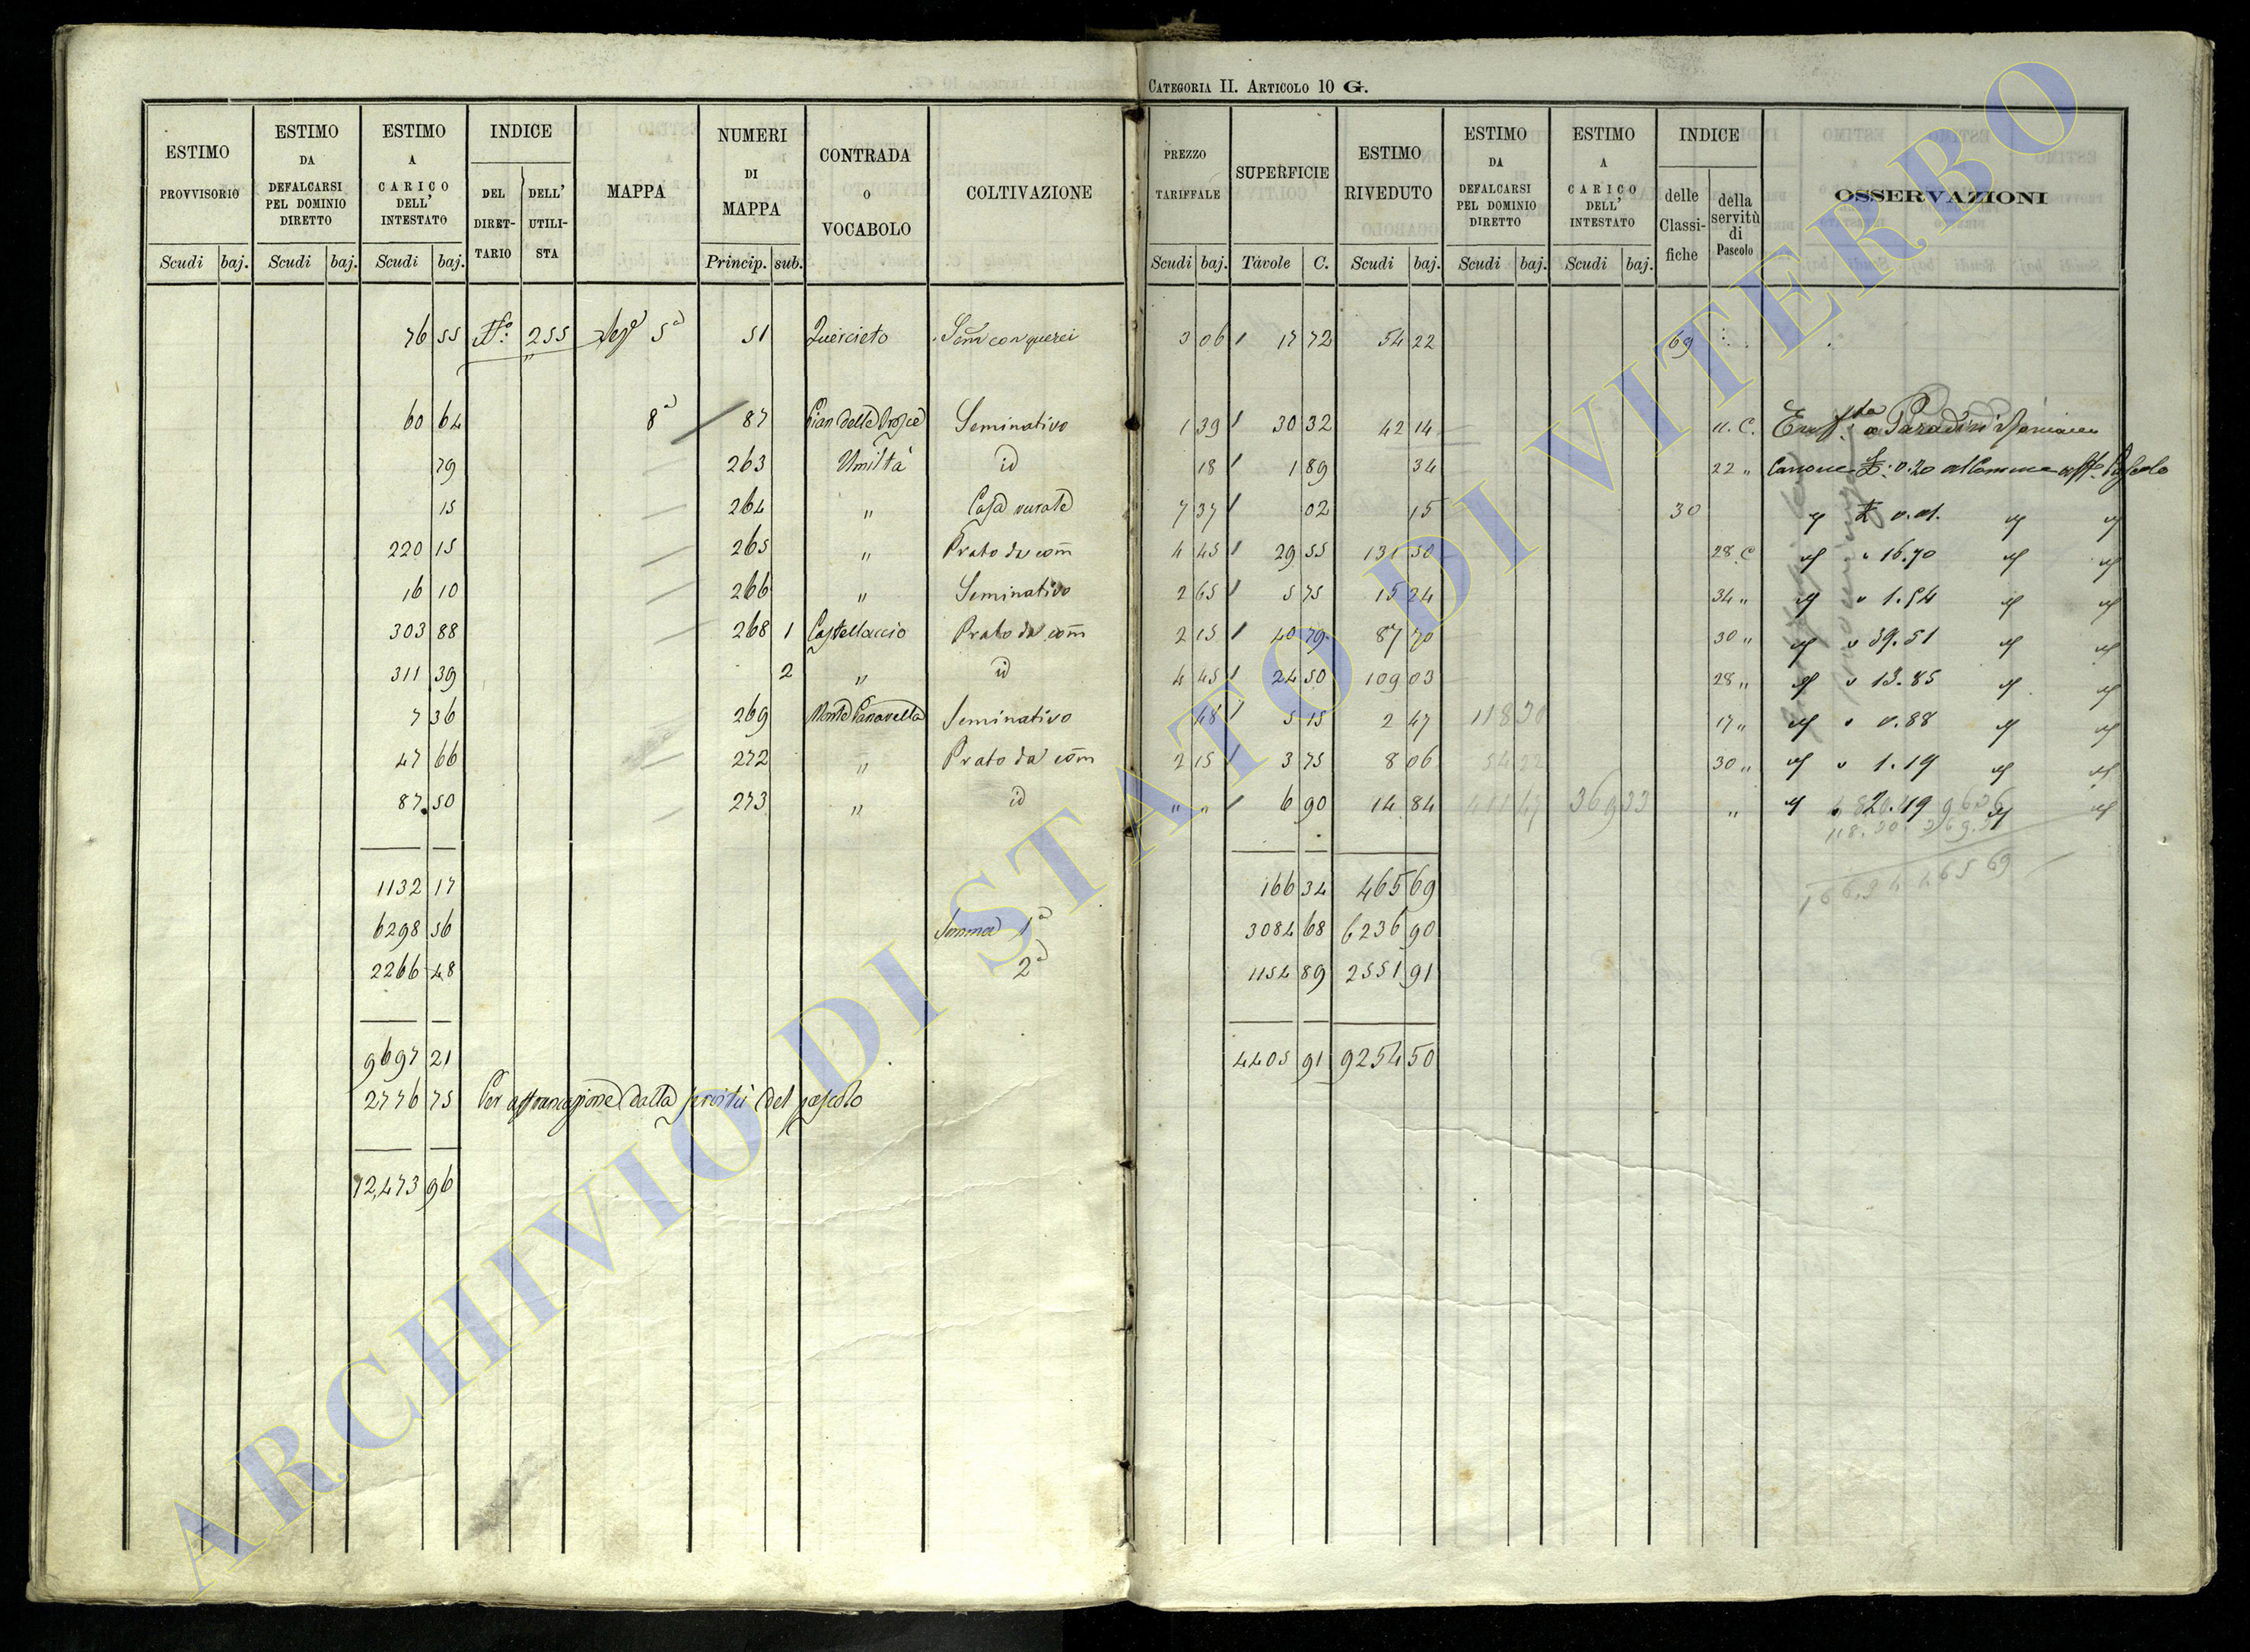 CATEGORIA II. ARTICOLO 10 G.
ESTIMO PROVVISORIO
ESTIMO DA DEFALCARSI PEL DOMINIO DIRETTO
ESTIMO A CARICO DELL' INTESTATO
INDICE
DEL DIRET-TARIO
DELL' UTILI-STA
MAPPA
NUMERI DI MAPPA
CONTRADA O VOCABOLO
COLTIVAZIONE
PREZZO TARIFFALE
SUPERFICIE
ESTIMO RIVEDUTO
ESTIMO DA DEFALCARSI PEL DOMINIO DIRETTO
ESTIMO A CARICO DELL' INTESTATO
INDICE
delle Classi-fiche
della servitù di Pascolo
OSSERVAZIONI
Scudi baj. Scudi baj. Scudi baj. Princip. sub. Scudi baj. Tavole C. Scudi baj. Scudi baj. Scudi baj.
76 55 N.° 255 5ª 51 Querceto Sem con querci 3 06 17 72 54 22 69
60 64 8ª 87 Seminativo 1 39 30 32 42 14 11. C. a Paradisi
79 263 Umiltà id 18 1 89 34 22 " Canone £. 0.20 Pascolo
15 264 " Casa 7 37 02 15 30 £ 0.01.
220 15 265 " Prato da com 4 45 29 55 131 50 28 C " 16.70
16 10 266 " Seminativo 2 65 5 75 15 24 34 " " 1.54
303 88 268 1 Castellaccio Prato da com 2 15 40 79 87 70 30 " " 39.51
311 39 2 " id 4 45 24 50 109 03 28 " " 13.85
7 36 269 Monte Seminativo 48 5 15 2 47 118 30 17 " " 0.88
47 66 272 " Prato da com 2 15 3 75 8 06 54 22 30 " " 1.19
87 50 273 " id " " 6 90 14 84 411 47 369 33 " " 2.19
1132 17 166 34 465 69
166.34 465 69
6298 56 Somma 1ª 3084 68 6236 90
2266 48 2ª 1154 89 2551 91
9697 21 4405 91 9254 50
2776 75 Per affrancazione dalla servitù del pascolo
12,473 96
ARCHIVIO DI STATO DI VITERBO